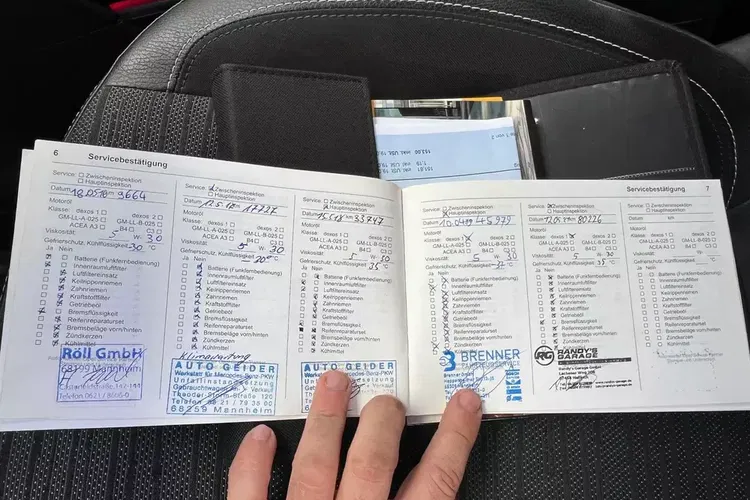 6 Servicebestätigung
Service: Zwischeninspektion
Hauptinspektion
Datum km 9664
Motoröl
Klasse: dexos 1 dexos 2
GM-LL-A-025 GM-LL-B-025
ACEA A3 B4 C3
Viskosität: 5 W 30
Gefrierschutz, Kühlflüssigkeit -30 °C
Ja Nein
Batterie (Funkfernbedienung)
Innenraumluftfilter
Luftfiltereinsatz
Keilrippenriemen
Zahnriemen
Kraftstofffilter
Getriebeöl
Bremsflüssigkeit
Reifenreparaturset
Bremsbeläge vorn/hinten
Zündkerzen
Kühlmittel
Röll GmbH
68199 Mannheim
Service: Zwischeninspektion
Hauptinspektion
Datum 17727
Motoröl
Klasse: dexos 1 dexos 2
GM-LL-A-025 GM-LL-B-025
ACEA A3 B4 C3
Viskosität: 5 W 30
Gefrierschutz, Kühlflüssigkeit
Ja Nein
Batterie (Funkfernbedienung)
Innenraumluftfilter
Luftfiltereinsatz
Keilrippenriemen
Zahnriemen
Kraftstofffilter
Getriebeöl
Bremsflüssigkeit
Reifenreparaturset
Bremsbeläge vorn/hinten
Zündkerzen
Kühlmittel
Klimawartung
AUTO GEIDER
Werkstatt für Mercedes-Benz-PKW
Unfallinstandsetzung
Gebrauchtwagen Verkauf
Theodor-Storm-Straße 120
Telefon 06 21 / 79 38 80
68259 Mannheim
Service: Zwischeninspektion
Hauptinspektion
Datum km 33747
Motoröl
Klasse: dexos 1 dexos 2
GM-LL-A-025 GM-LL-B-025
ACEA A3 B4 C3
Viskosität: 5 W 30
Gefrierschutz, Kühlflüssigkeit
35 °C
Ja Nein
Batterie (Funkfernbedienung)
Innenraumluftfilter
Luftfiltereinsatz
Keilrippenriemen
Zahnriemen
Kraftstofffilter
Getriebeöl
Bremsflüssigkeit
Reifenreparaturset
Bremsbeläge vorn/hinten
Zündkerzen
Kühlmittel
AUTO GEIDER
Werkstatt für Mercedes-Benz-PKW
Servicebestätigung 7
Service: Zwischeninspektion
Hauptinspektion
Datum
Motoröl
Klasse: dexos 1 dexos 2
GM-LL-A-025 GM-LL-B-025
ACEA A3 B4 C3
Viskosität: 5 W 30
Gefrierschutz, Kühlflüssigkeit
Ja Nein
Batterie (Funkfernbedienung)
Innenraumluftfilter
Luftfiltereinsatz
Keilrippenriemen
Zahnriemen
Kraftstofffilter
Getriebeöl
Bremsflüssigkeit
Reifenreparaturset
Bremsbeläge vorn/hinten
Zündkerzen
Kühlmittel
BRENNER
Service: Zwischeninspektion
Hauptinspektion
Datum km 80226
Motoröl
Klasse: dexos 1 dexos 2
GM-LL-A-025 GM-LL-B-025
ACEA A3 B4 C3
Viskosität: 5 W 30
Gefrierschutz, Kühlflüssigkeit 35 °C
Ja Nein
Batterie (Funkfernbedienung)
Innenraumluftfilter
Luftfiltereinsatz
Keilrippenriemen
Zahnriemen
Kraftstofffilter
Getriebeöl
Bremsflüssigkeit
Reifenreparaturset
Bremsbeläge vorn/hinten
Zündkerzen
Kühlmittel
RG RANDYS GARAGE
Randy's Garage GmbH
Service: Zwischeninspektion
Hauptinspektion
Datum km
Motoröl
Klasse: dexos 1 dexos 2
GM-LL-A-025 GM-LL-B-025
ACEA A3 B4 C3
Viskosität: W
Gefrierschutz, Kühlflüssigkeit °C
Ja Nein
Batterie (Funkfernbedienung)
Innenraumluftfilter
Luftfiltereinsatz
Keilrippenriemen
Zahnriemen
Kraftstofffilter
Getriebeöl
Bremsflüssigkeit
Reifenreparaturset
Bremsbeläge vorn/hinten
Zündkerzen
Kühlmittel